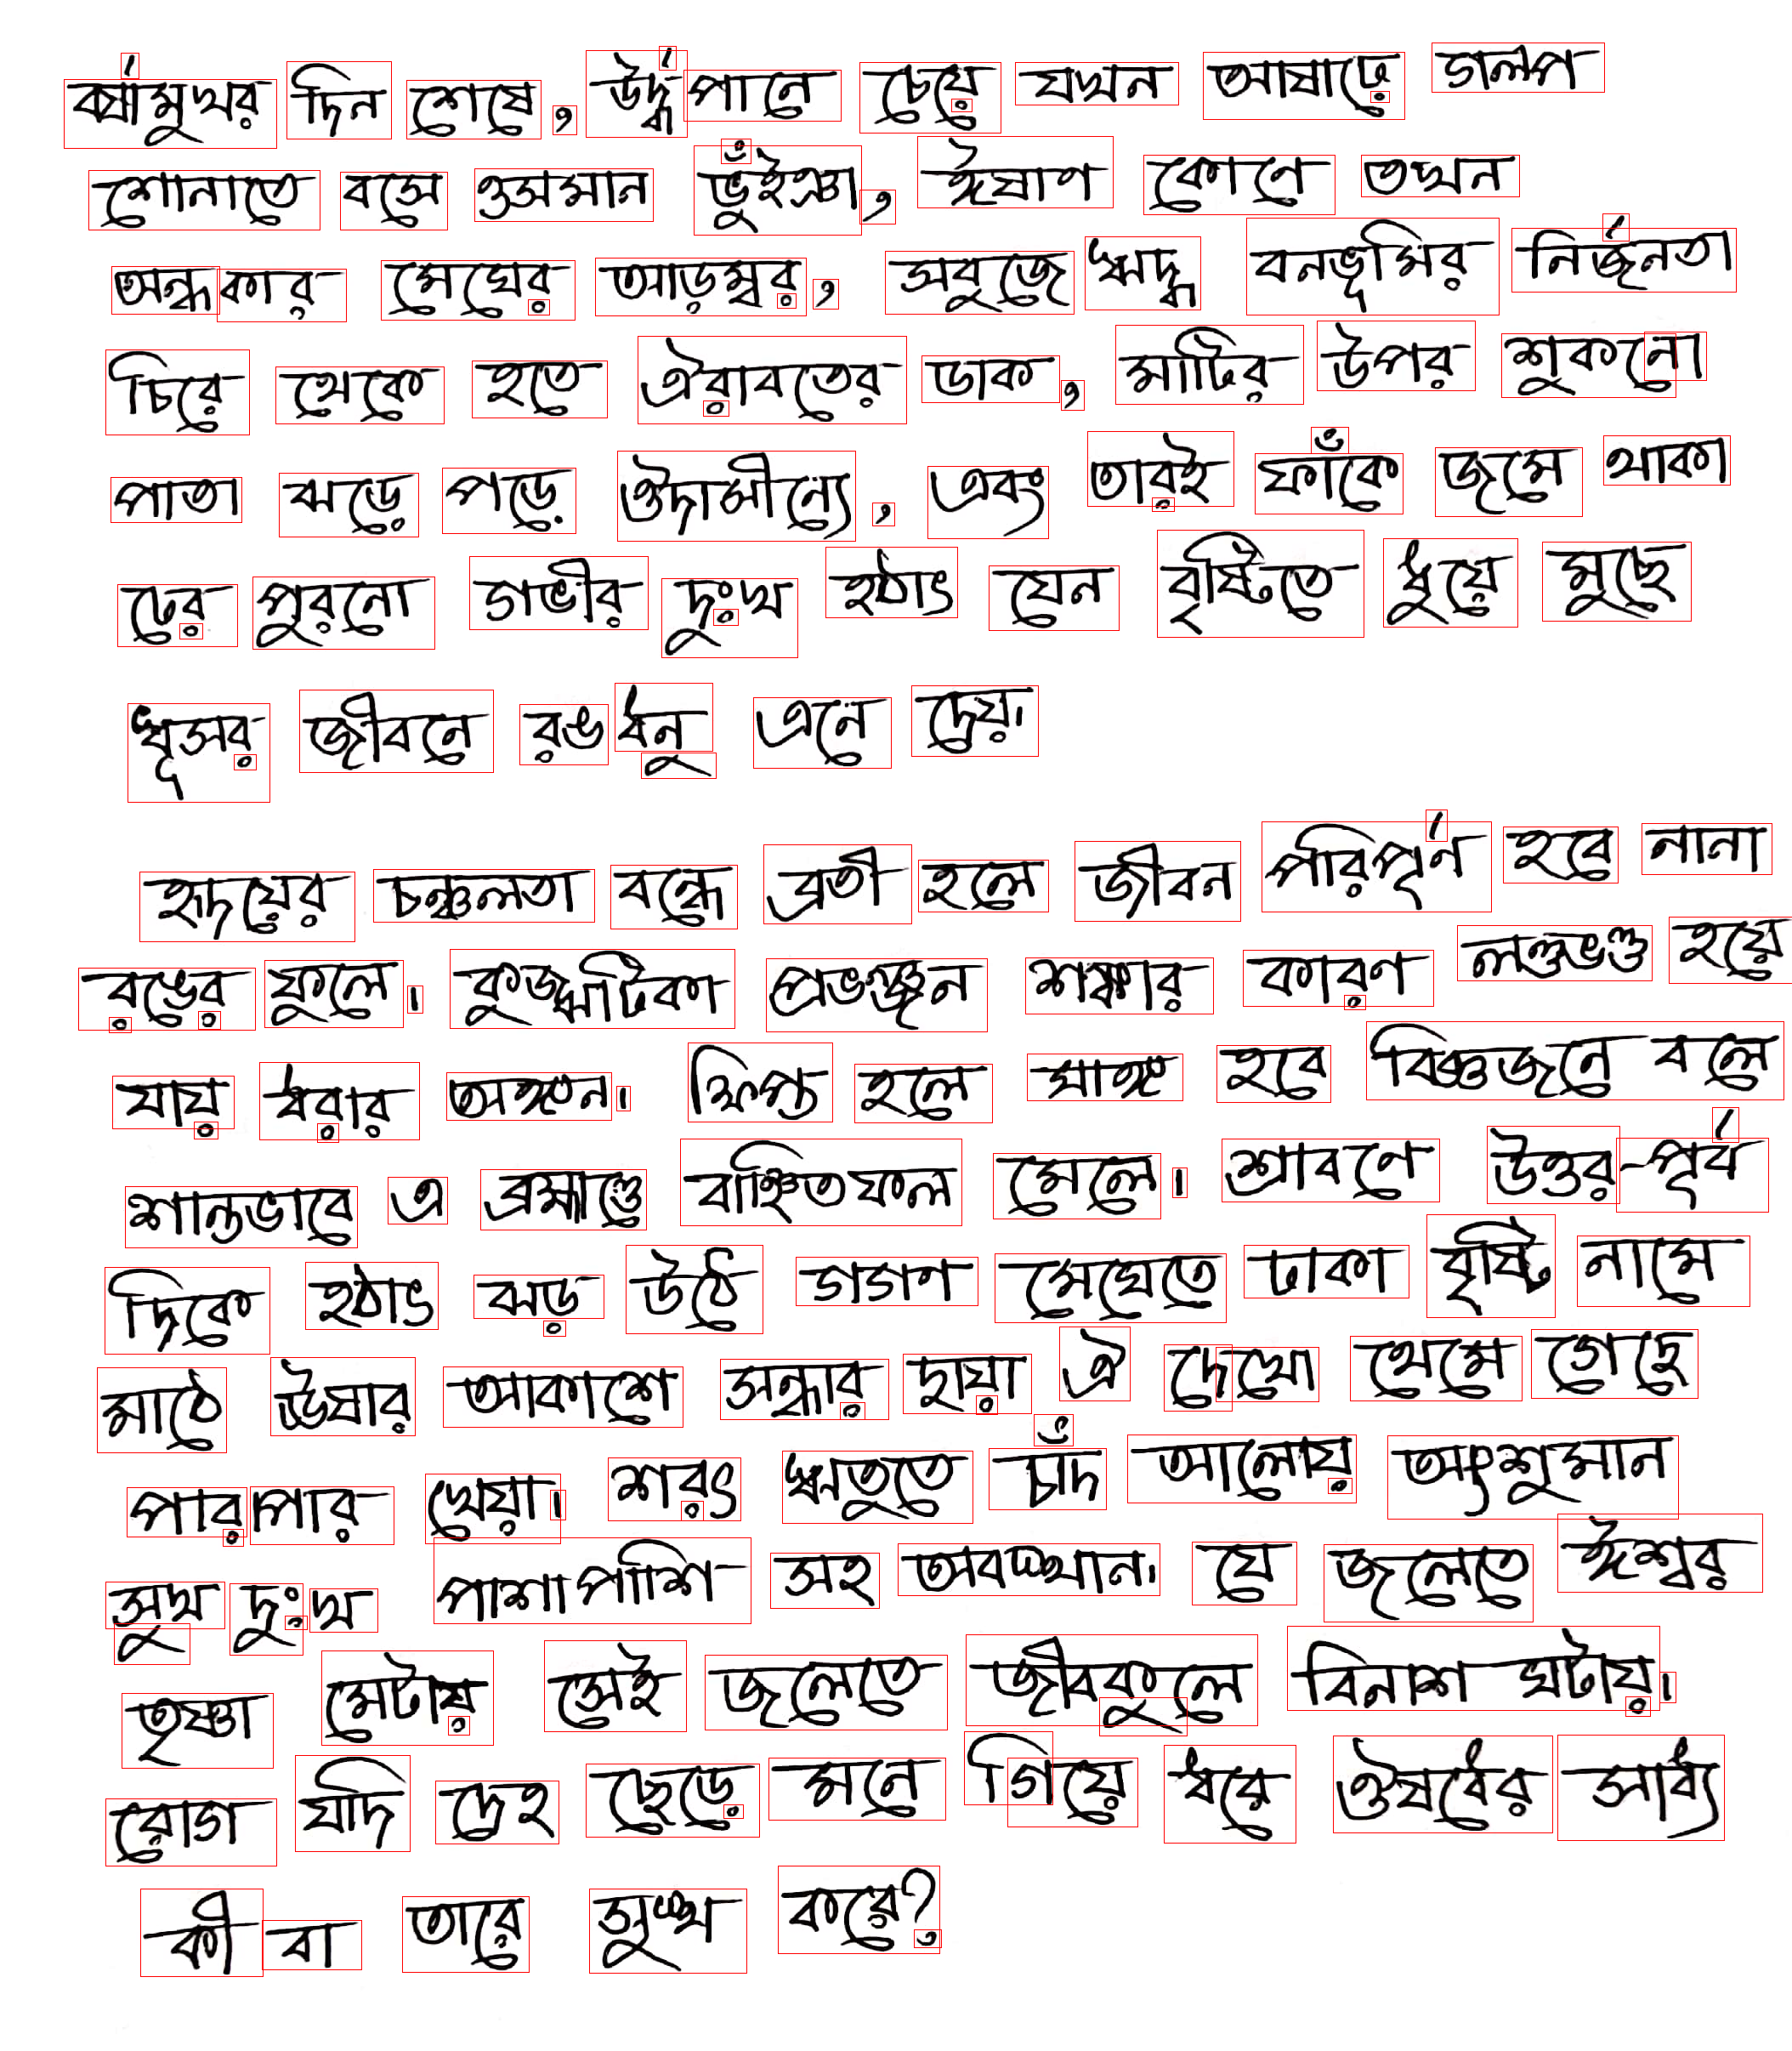 বর্ষামুখর দিন শেষে, উর্দ্ধপানে চেয়ে যখন আষাঢ়ে গল্প
শোনাতে বসে ওসমান ভুঁইঞা, ঈষাণ কোণে তখন
অন্ধকার মেঘের আড়ম্বর, সবুজে ঋদ্ধ বনভূমির নির্জনতা
চিরে থেকে হতে ঐরাবতের ডাক, মাটির উপর শুকনো
পাতা ঝড়ে পড়ে ঔদাসীন্যে, এবং তারই ফাঁকে জমে থাকা
ঢের পুরনো গভীর দুঃখ হঠাৎ যেন বৃষ্টিতে ধুয়ে মুছে
ধূসর জীবনে রঙধনু এনে দেয়।
হৃদয়ের চঞ্চলতা বন্ধে ব্রতী হলে জীবন পরিপূর্ণ হবে নানা
রঙের ফুলে। কুজ্ঝটিকা প্রভঞ্জন শঙ্কার কারণ লণ্ডভণ্ড হয়ে
যায় ধরার অঙ্গন। ক্ষিপ্ত হলে সাঙ্গ হবে বিজ্ঞজনে বলে
শান্তভাবে এ ব্রহ্মাণ্ডে বাঞ্ছিতফল মেলে। শ্রাবণে উত্তর-পূর্ব
দিকে হঠাৎ ঝড় উঠে গগণ মেঘেতে ঢাকা বৃষ্টি নামে
মাঠে ঊষার আকাশে সন্ধার ছায়া ঐ দেখো থেমে গেছে
পারপার খেয়া। শরৎ ঋতুতে চাঁদ আলোয় অংশুমান
সুখ দুঃখ পাশাপাশি সহ অবস্থান। যে জলেতে ঈশ্বর
তৃষ্ণা মেটায় সেই জলেতে জীবকুলে বিনাশ ঘটায়।
রোগ যদি দেহ ছেড়ে মনে গিয়ে ধরে ঔষধের সাধ্য
কী বা তারে সুস্থ করে?